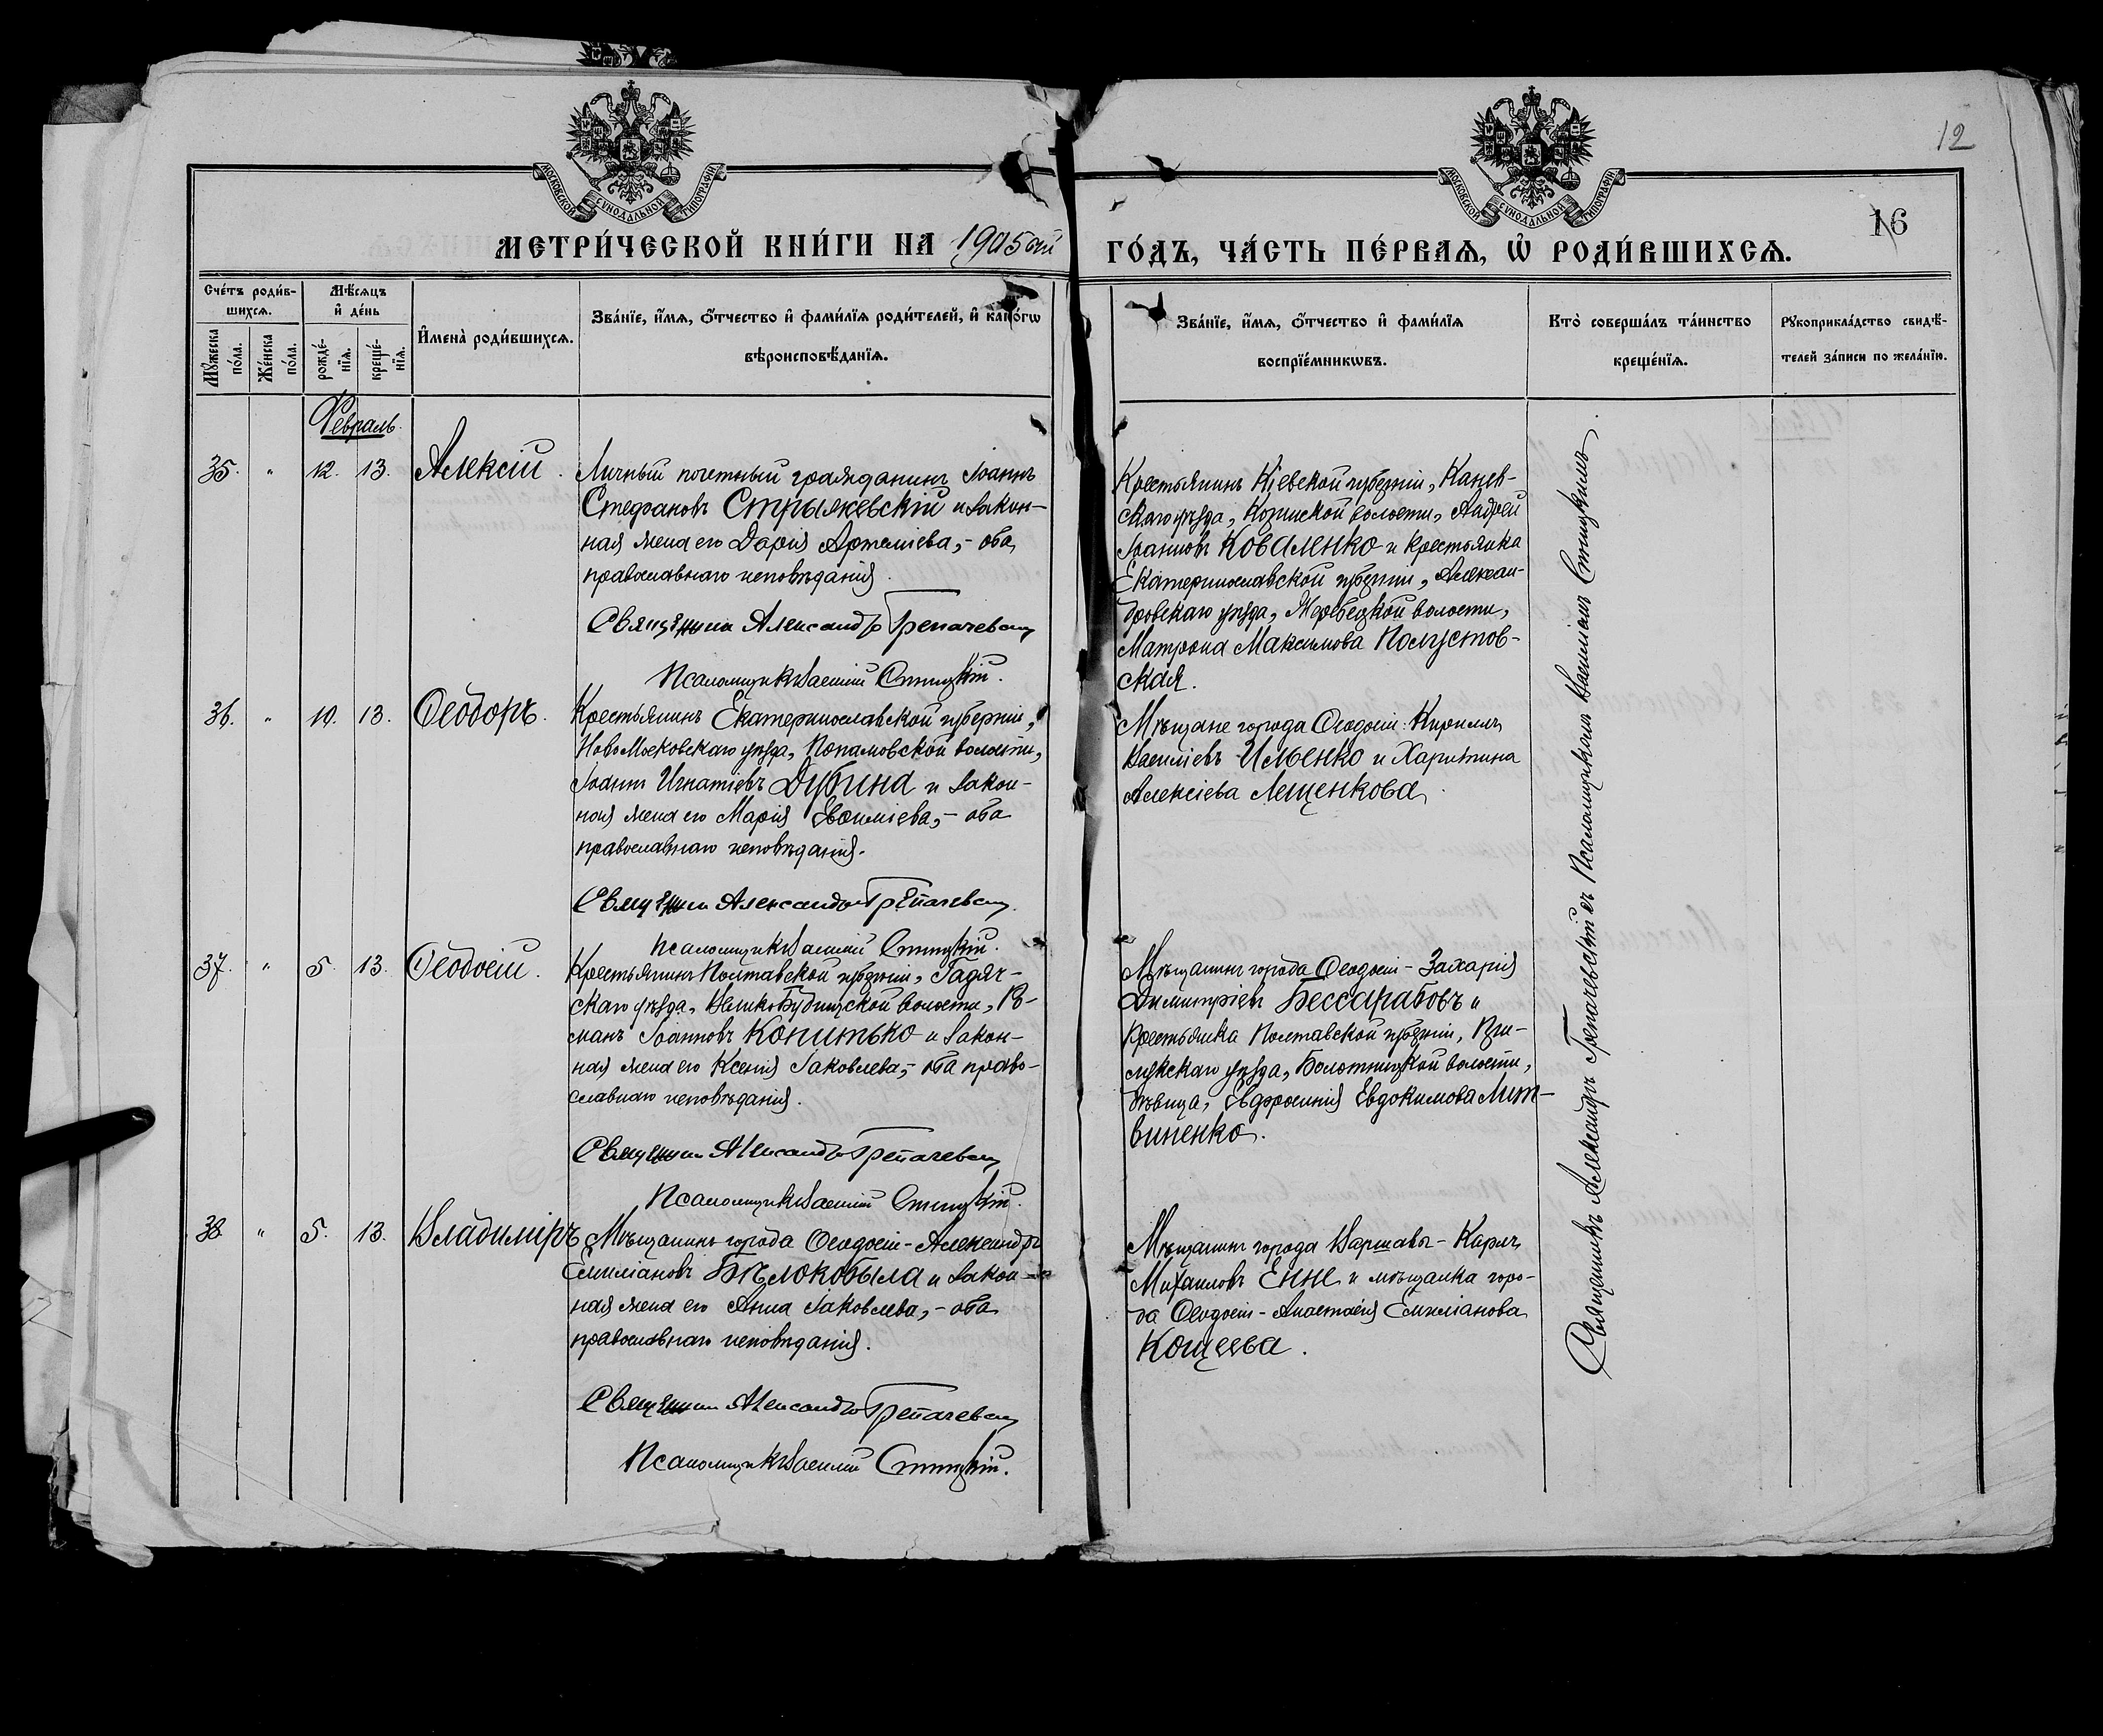 МОСКОВСКОЙ СѴНОДАЛЬНОЙ ТИПОГРАФІИ
МОСКОВСКОЙ СѴНОДАЛЬНОЙ ТИПОГРАФІИ
12
16
МЕТРИ́ЧЕСКОЙ КНИ́ГИ НА 1905ый ГО́ДЪ, ЧА́СТЬ ПЕ́РВАѦ, Ѡ҆ РОДИ́ВШИХСѦ.
Сче́тъ роди́в-
шихсѧ.
Мꙋ́жеска по́ла.
Же́нска по́ла.
Мѣ́сѧцъ
и҆ де́нь
рожде́-
нїѧ.
креще́-
нїѧ.
И҆мена̀ роди́вшихсѧ.
Зва́нїе, и҆́мѧ, ѻ҆́тчество и҆ фами́лїѧ роди́телей, и҆ како́гѡ
вѣроисповѣ́данїѧ.
Зва́нїе, и҆́мѧ, ѻ҆́тчество и҆ фами́лїѧ
воспрїе́мникѡвъ.
Кто̀ соверша́лъ та́инство
креще́нїѧ.
Рꙋкоприкла́дство свидѣ́-
телей за́писи по жела́нїю.
Февраль.
35. " 12. 13. Алексій.
Личный почетный гражданинъ Іоаннъ
Стефановъ Стрыжевскій и закон-
ная жена его Дарія Артеміева,- оба
православнаго исповѣданія.
Священникъ Александръ Трепачевскій
Псаломщикъ Василій Стицкій.
Крестьянинъ Кіевской губерніи, Канев-
скаго уѣзда, Козинской волости, Андрей
Іоанновъ Коваленко и крестьянка
Екатеринославской губерніи, Алексан-
дровскаго уѣзда, Жеребецкой волости,
Матрона Максимова Полустов-
ская.
36. " 10. 13. Ѳеодоръ.
Крестьянинъ Екатеринославской губерніи,
Новомосковскаго уѣзда, волости,
Іоаннъ Игнатіевъ Дубина и закон-
ная жена его Марія Евѳиміева,- оба
православнаго исповѣданія.
Священникъ Александръ Трепачевскій
Псаломщикъ Василій Стицкій.
Мѣщане города Ѳеодосіи: Кириллъ
Василіевъ Ильенко и Харитина
Алексіева Лещенкова.
37. " 5. 13. Ѳеодосій.
Крестьянинъ Полтавской губерніи, Гадяч-
скаго уѣзда, Великобудищской волости, Ро-
манъ Іоанновъ Копитько и закон-
ная жена его Ксенія Іаковлева,- оба право-
славнаго исповѣданія.
Священникъ Александръ Трепачевскій
Псаломщикъ Василій Стицкій.
Мѣщанинъ города Ѳеодосіи - Захарія
Димитріевъ Бессарабовъ и
крестьянка Полтавской губерніи, При-
лукскаго уѣзда, волости,
дѣвица, Евфросинія Евдокимова Лит-
виненко.
38. " 5. 13. Владиміръ
Мѣщанинъ города Ѳеодосіи - Александръ
Емиліановъ Бѣлокобыла и закон-
ная жена его Анна Іаковлева,- оба
православнаго исповѣданія.
Священникъ Александръ Трепачевскій
Псаломщикъ Василій Стицкій.
Мѣщанинъ города Варшавы - Карлъ
Михаиловъ Енне и мѣщанка горо-
да Ѳеодосіи - Анастасія Емиліанова
Кощеева.
Священникъ Александръ Трепачевскій съ Псаломщикомъ Василіемъ Стицкимъ.